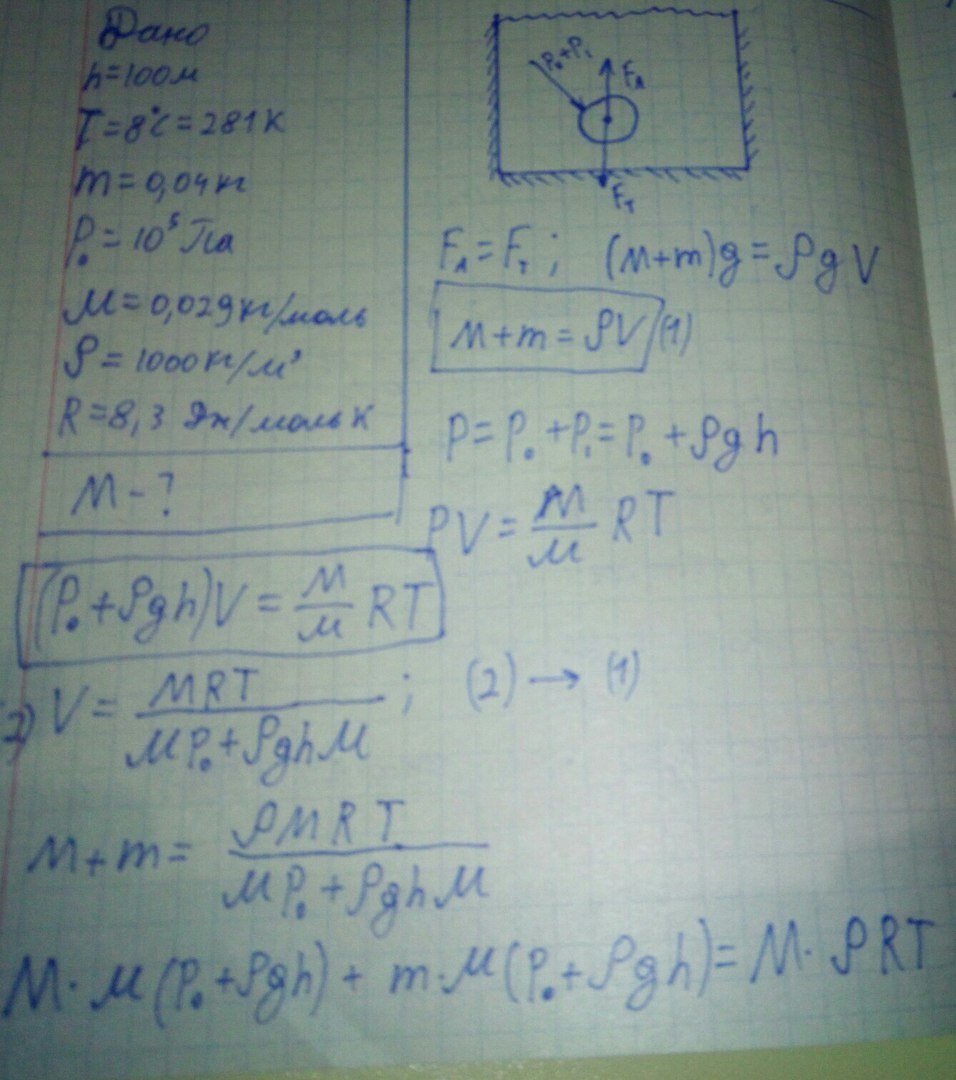 Дано
h=100м
T=8°C=281К
m=0,04кг
P₀=10⁵Па
μ=0,029кг/моль
ρ=1000кг/м³
R=8,3 Дж/моль К
M-?
P₀+P₁
Fₐ
Fт
Fₐ=Fт; (M+m)g=ρgV
M+m=ρV (1)
P=P₀+P₁=P₀+ρgh
PV=M/μ RT
(P₀+ρgh)V=M/μ RT
2) V=MRT/(μP₀+ρghμ); (2)→(1)
M+m=ρMRT/(μP₀+ρghμ)
M·μ(P₀+ρgh)+m·μ(P₀+ρgh)=M·ρRT